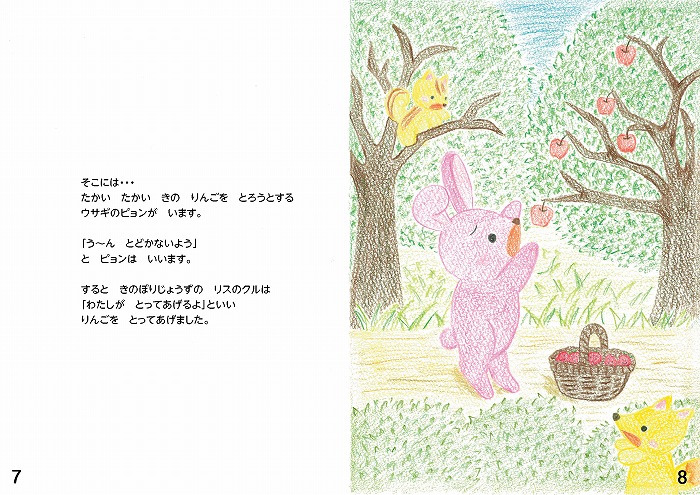 そこには・・・
たかい　たかい　きの　りんごを　とろうとする
ウサギのピョンが　います。
「う～ん　とどかないよう」
と　ピョンは　いいます。
すると　きのぼりじょうずの　リスのクルは
「わたしが　とってあげるよ」といい
りんごを　とってあげました。
7
8